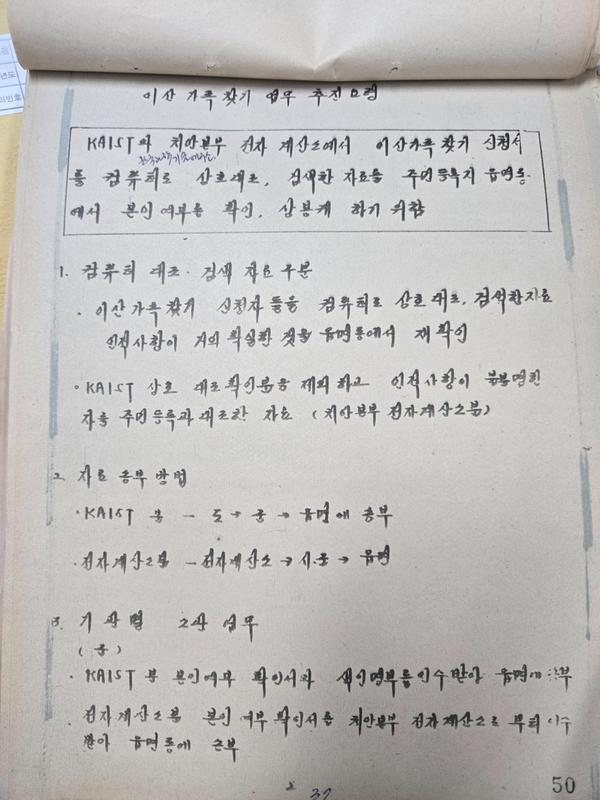 이산 가족 찾기 업무 추진요령
KAIST와 치안본부 전자 계산소에서 이산가족 찾기 신청서
를 컴퓨터로 상호대조, 검색한 자료를 주민등록지 읍면동
에서 본인여부를 확인, 상봉케 하기 위함
1. 컴퓨터 대조·검색 자료 구분
· 이산가족 찾기 신청자 들을 컴퓨터로 상호 대조, 검색한자료
인적사항이 거의 확실한 것을 읍면동에서 재확인
· KAIST 상호 대조확인분을 제외 하고 인적사항이 불분명한
자를 주민등록과 대조한 자료 (치안본부 전자계산소분)
2. 자료 송부 방법
· KAIST 분 - 도 → 군 → 읍면에 송부
· 전자계산소분 - 전자계산소 → 시.군 → 읍면
3. 기관별 업무
(군)
· KAIST 분 본인여부 확인서와 색인명부를 인수받아 읍면에 송부
· 전자계산소분 본인 여부 확인서를 치안본부 전자계산소로 부터 인수
받아 읍면동에 송부
2
37
50